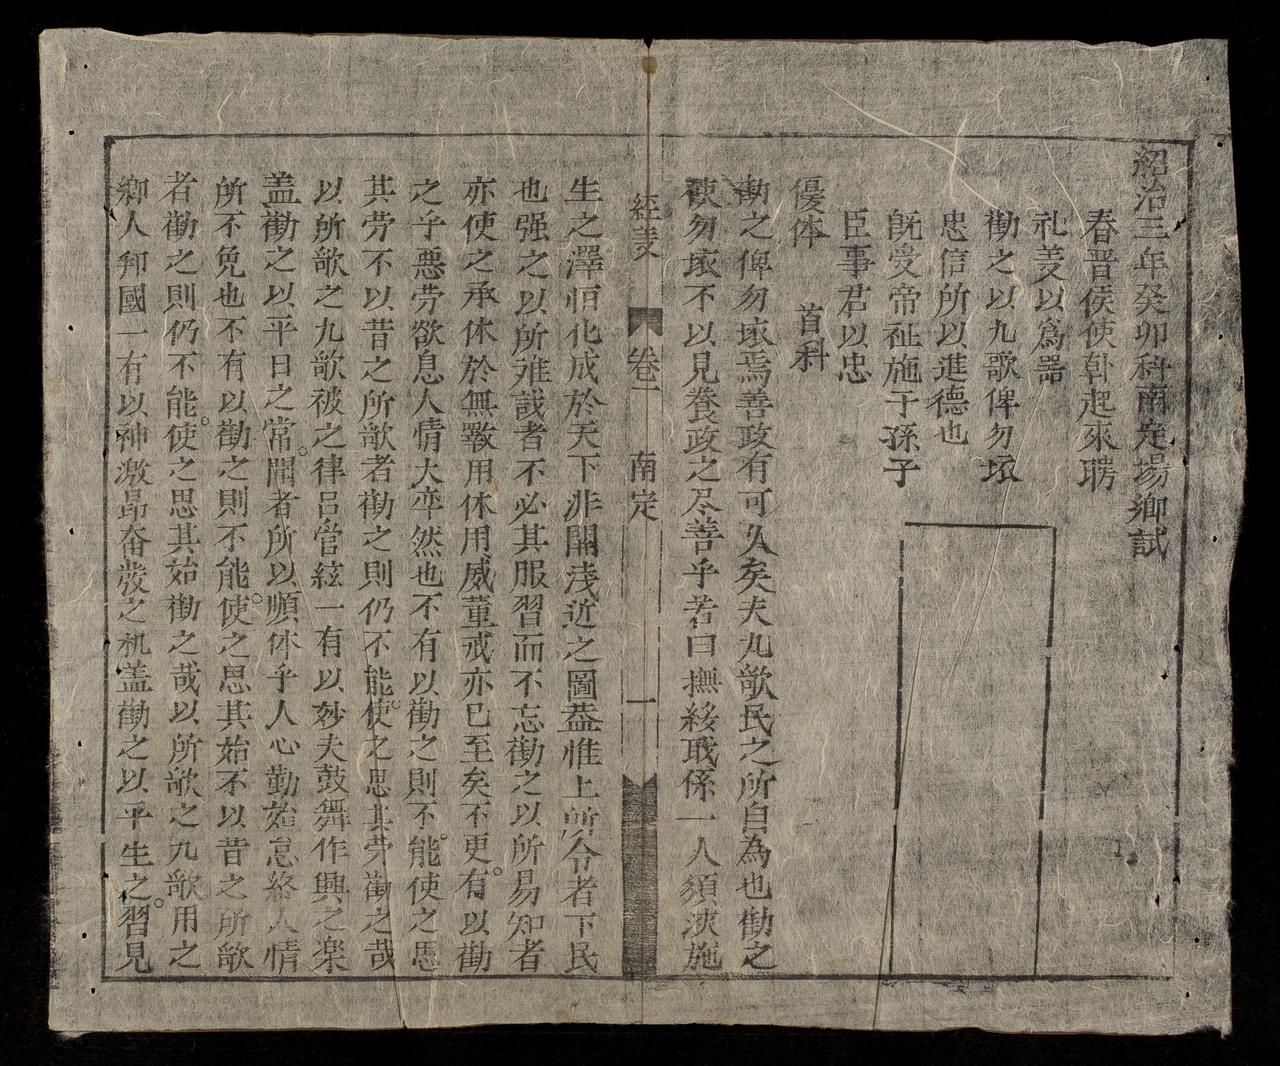 紹治三年癸卯科南定場鄉試
春晋侯使韓起來聘
礼義以為器
勸之以九歌俾勿壞
忠信所以進德也
既受帝祉施于孫子
臣事君以忠
優体 首科
勸之俾勿壞焉善政有可久矣夫九歌民之所自為也勸之
使勿壞不以見養政之尽善乎若曰撫綏戢係一人須浹施
經義 卷一 南定 一
生之澤恒化成於天下非關浅近之圖盖惟上所令者下民
也强之以所难哉者不必其服習而不忘勸之以所易知者
亦使之承休於無斁用休用威董戒亦已至矣不更有以勸
之乎悪劳欲息人情大率然也不有以勸之則不能使之思
其劳不以昔之所歌者勸之則仍不能使之思其劳勸之哉
以所歌之九歌被之律吕管絃一有以妙夫鼓舞作興之楽
盖勸之以平日之常聞者所以順休乎人心勤始怠終人情
所不免也不有以勸之則不能使之思其始不以昔之所歌
者勸之則仍不能使之思其始勸之哉以所歌之九歌用之
鄉人邦國一有以神激昻奋發之机盖勸之以平生之習見